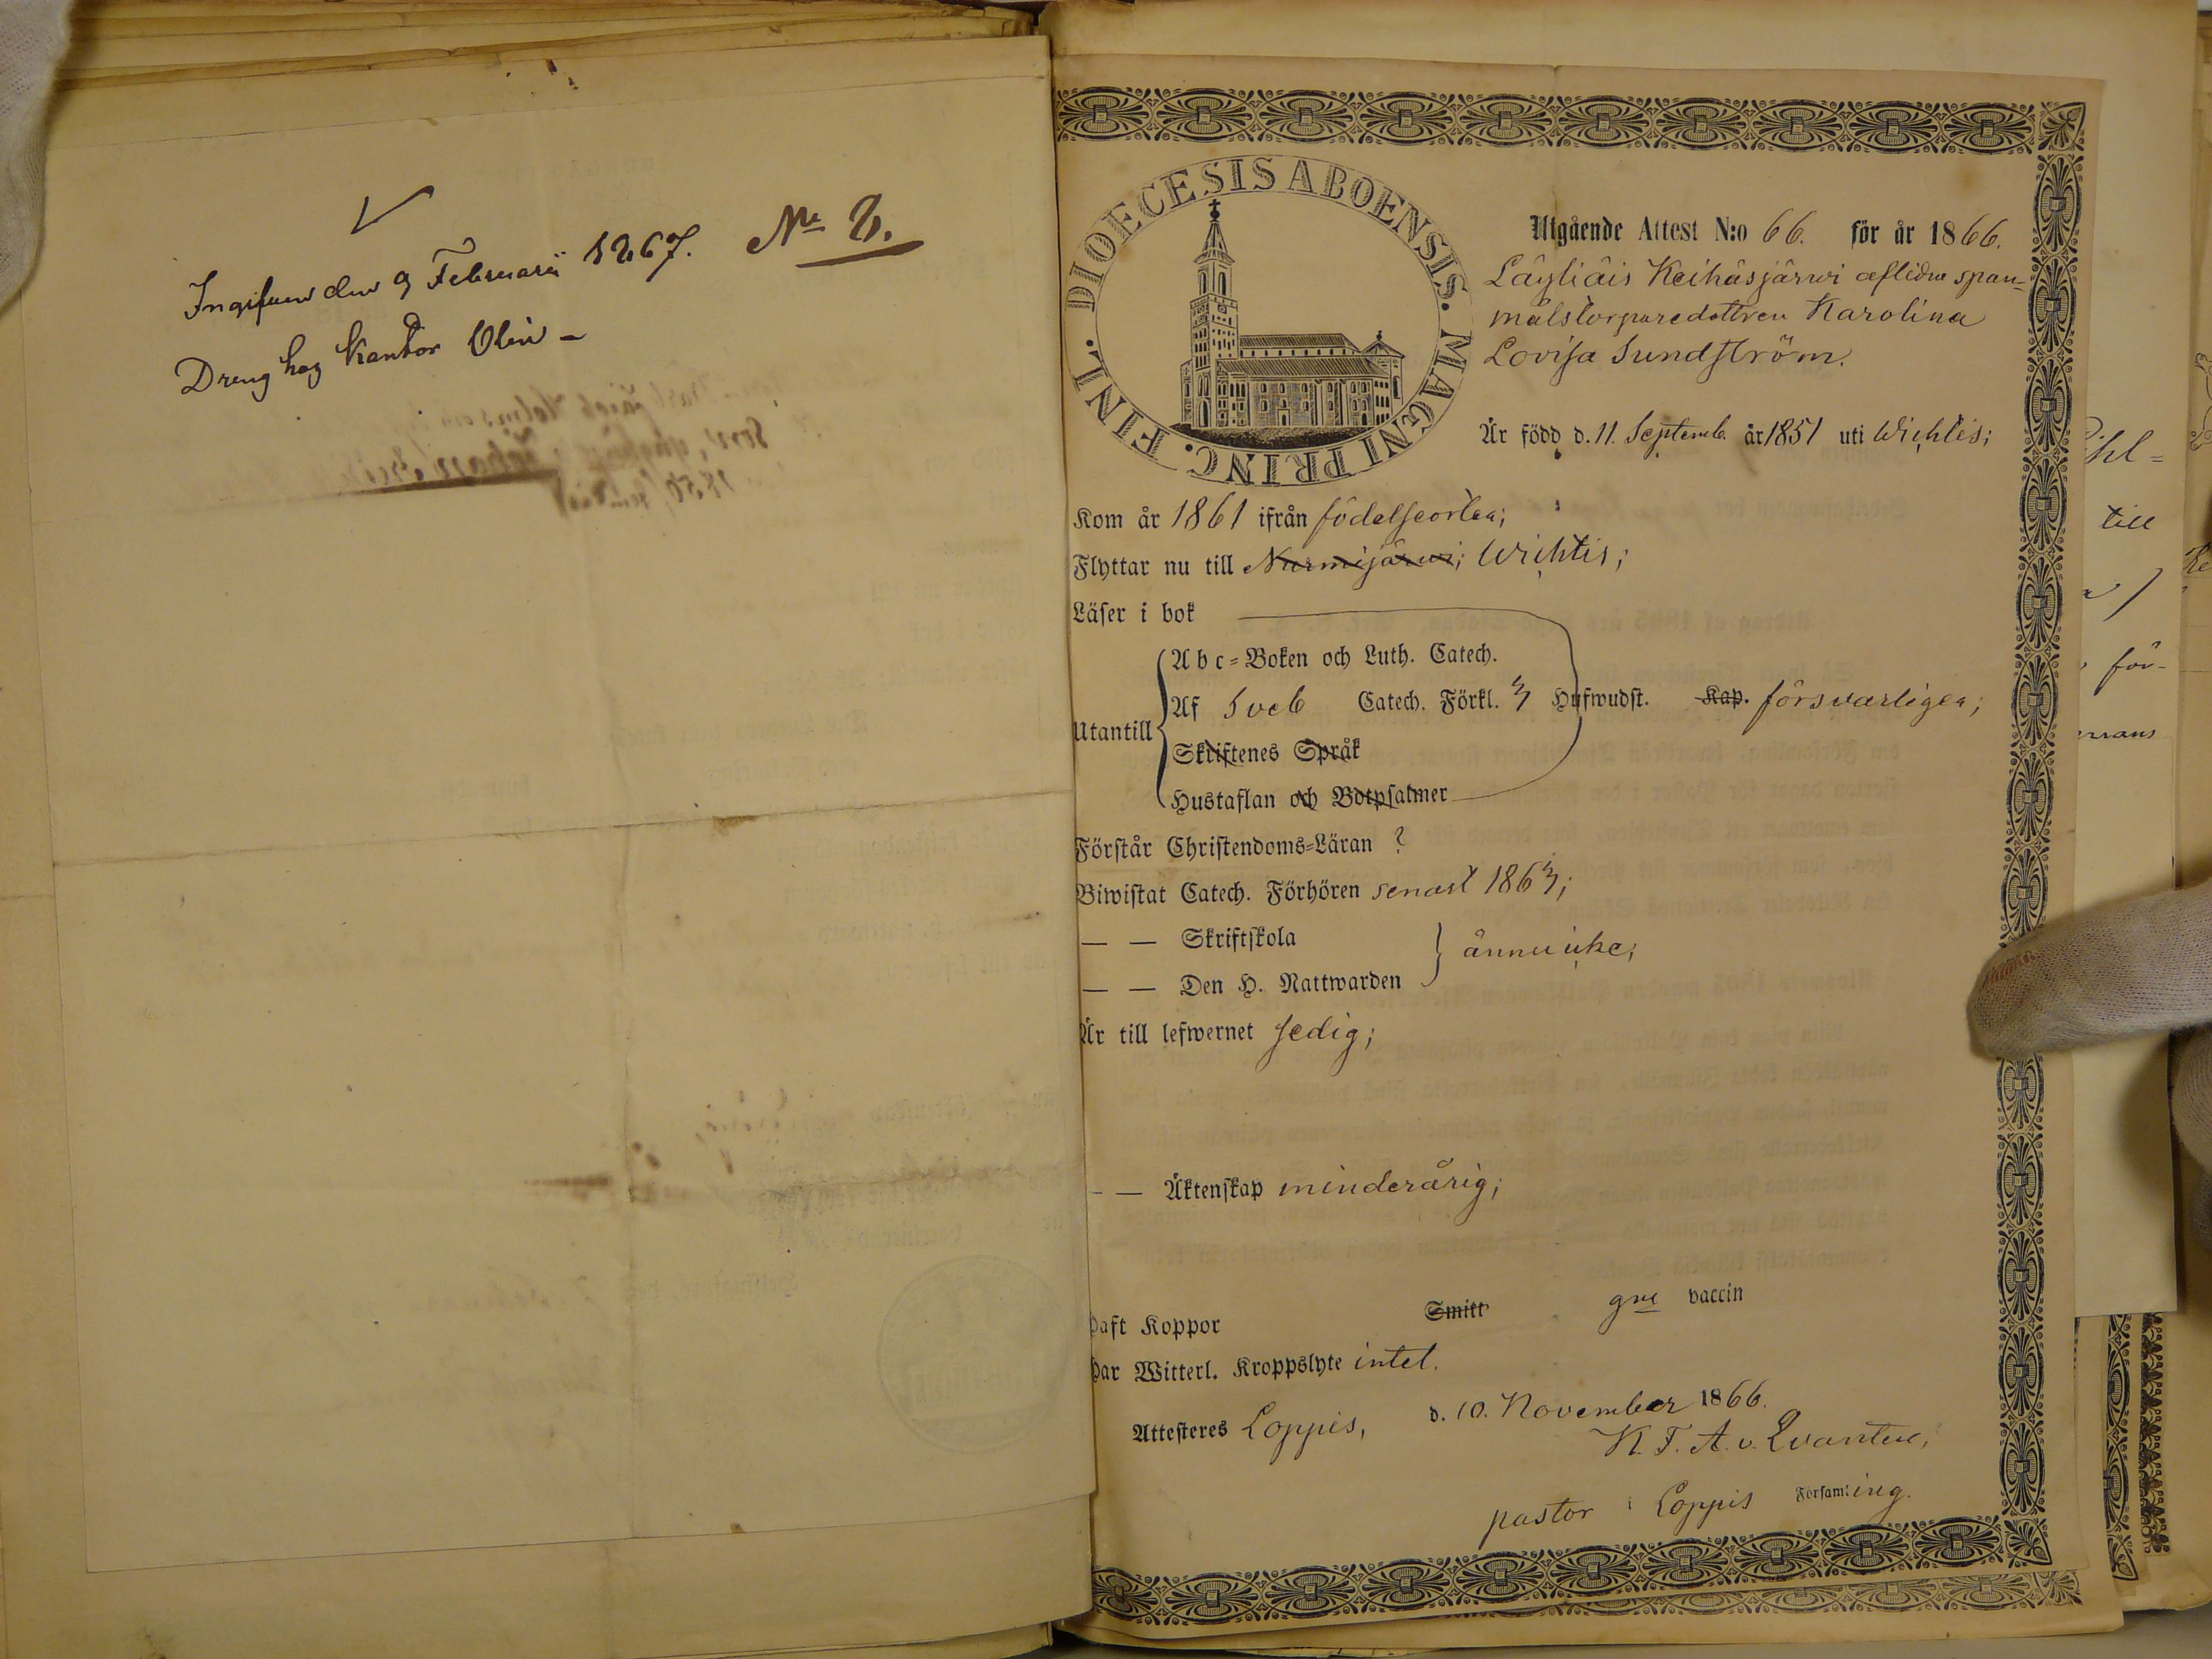 Ingifven den 9 Februarii 1867. No 8.
Dreng hos Kantor Olin -
DIOECESIS ABOENSIS. MAGNI PRINC. FINL.
Utgående Attest N:o 66. för år 1866.
Läyliäis Keihäsjärwi aflidne span-
målstorparedottren Karolina
Lovisa Sundström.
Är född d. 11. Septemb. år 1851 uti Wichtis;
Kom år 1861 ifrån födelseorten;
Flyttar nu till Nurmijärwi; Wichtis;
Läser i bok
Utantill
Abc-Boken och Luth. Catech.
Af Sveb Catech. Förkl. 3 Hufwudst. Kap. försvarligen;
Skriftenes Språk
Hustaflan och Botpsalmer
Förstår Christendoms-Läran ?
Biwistat Catech. Förhören senast 1863;
— — Skriftskola
ännu icke;
— — Den H. Nattwarden
Är till lefwernet sedig;
— — Äktenskap minderårig;
Haft Koppor Smitt gne vaccin
Har Witterl. Kroppslyte intet.
Attesteres Loppis, d. 10. November 1866.
K. F. A. v. Qvanten,
pastor i Loppis Församling.
ihl-
till
för-